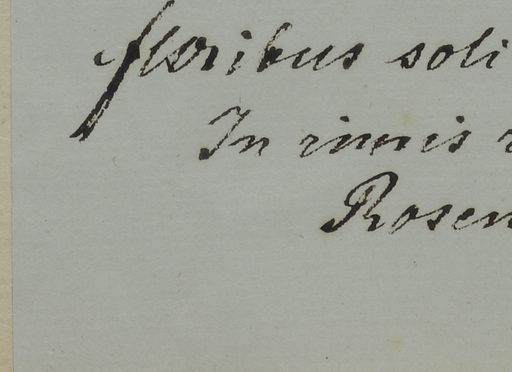 floribus soli
In rimis r
Rosen